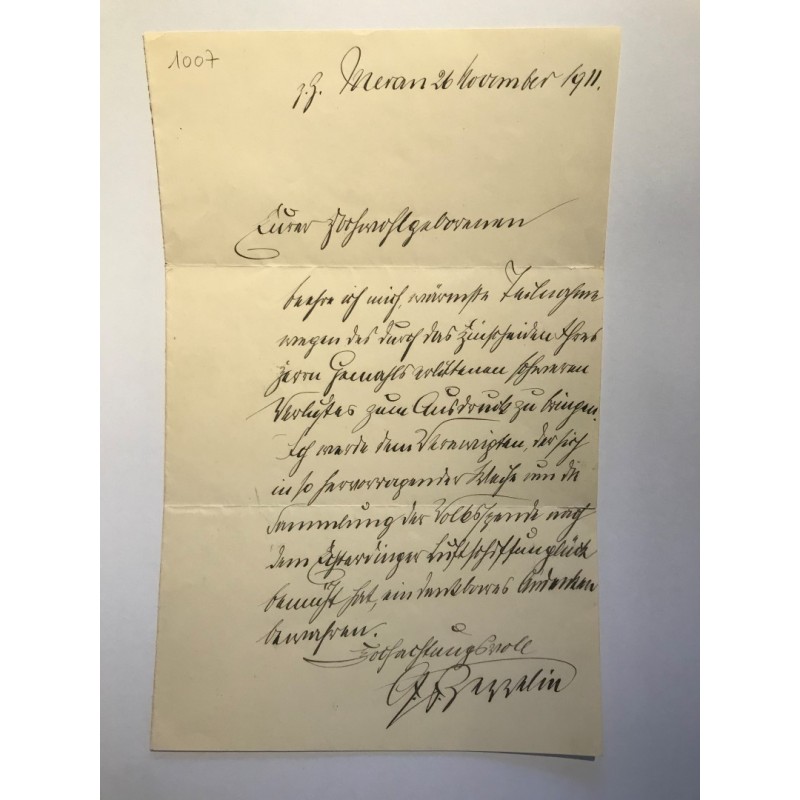 1007
z. Z. Meran 26 November 1911.
Eurer Hochwohlgeborenen
beehre ich mich, wärmste Teilnahme
wegen des durch das Hinscheiden Ihres
Herrn Gemahls erlittenen schweren
Verlustes zum Ausdruck zu bringen.
Ich werde dem Verewigten, der sich
in so hervorragender Weise um die
Sammlung der Volksspende nach
dem Echterdinger Luftschiffunglück
bemüht hat, ein dankbares Andenken
bewahren.
Hochachtungsvoll
Gf. Zeppelin